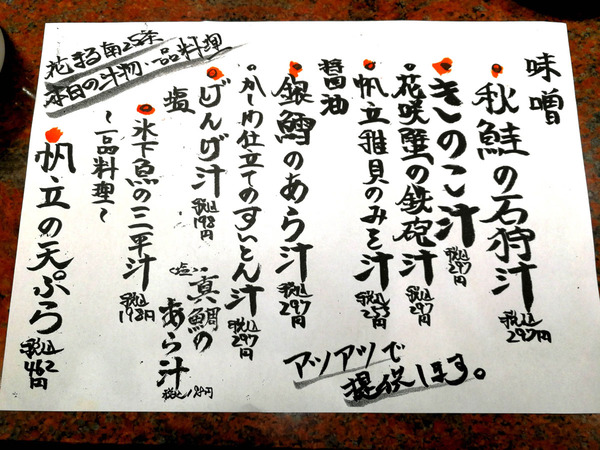 花まる南25条
本日の汁物・一品料理
味噌
秋鮭の石狩汁 税込297円
きのこ汁 税込297円
花咲蟹の鉄砲汁 税込297円
帆立稚貝のみそ汁 税込253円
醤油
銀鱈のあら汁 税込297円
かしわ仕立てのすいとん汁 税込297円
塩
げんげ汁 税込198円
氷下魚の三平汁 税込198円
<塩>真鯛のあら汁 税込
〜一品料理〜
帆立の天ぷら 税込462円
アツアツで
提供します。